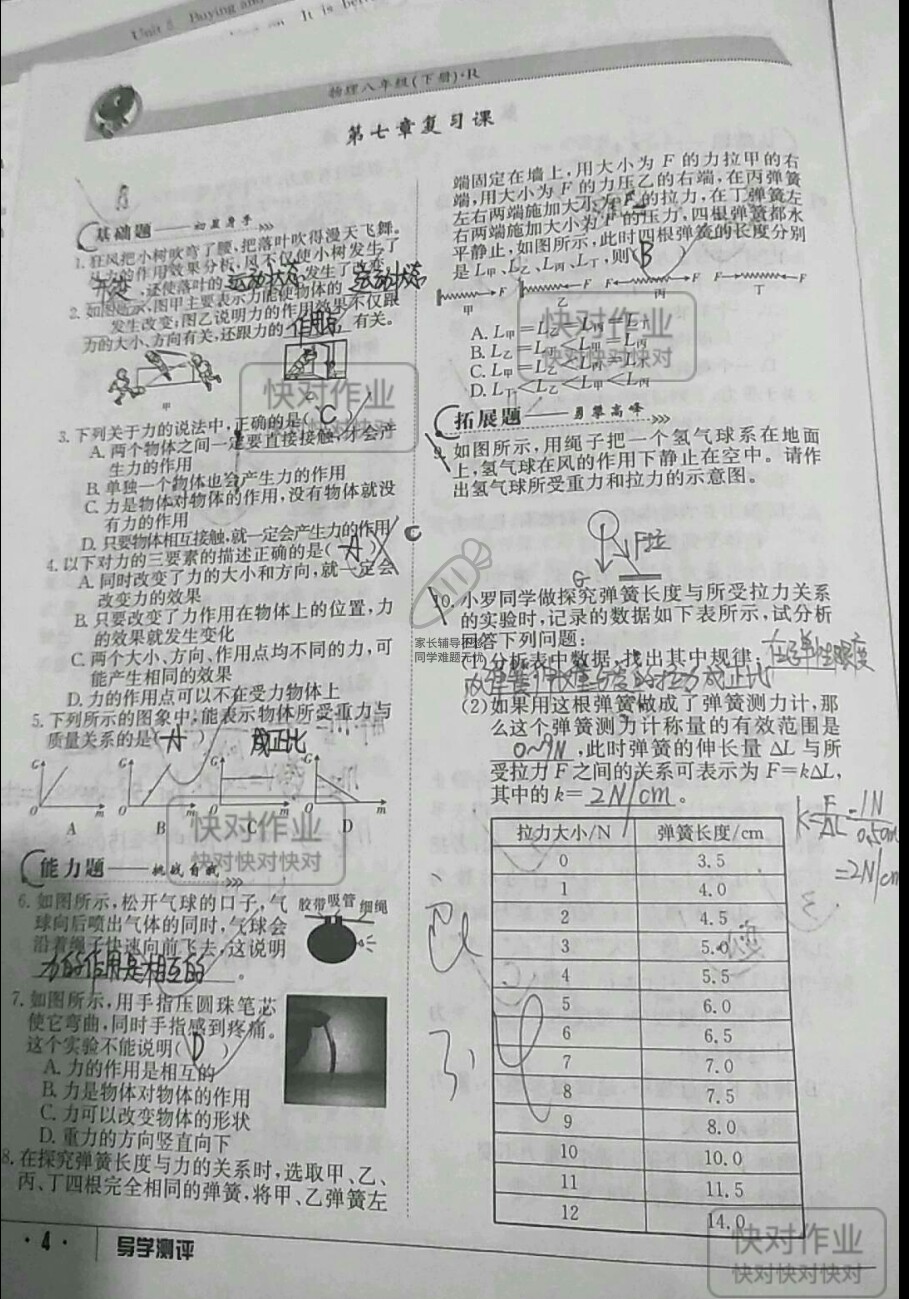 Unit 5 Buying and
It is be
物理八年级(下册)·R
第七章复习课
基础题——初显身手
1. 狂风把小树吹弯了腰,把落叶吹得漫天飞舞。
从力的作用效果分析,风不仅使小树发生了
形变,还使落叶的运动状态发生了改变。
2. 如图所示,图甲主要表示力能使物体的运动状态
发生改变;图乙说明力的作用效果不仅跟
力的大小、方向有关,还跟力的作用点有关。
甲
3. 下列关于力的说法中,正确的是( C )
A. 两个物体之间一定要直接接触,才会产
生力的作用
B. 单独一个物体也会产生力的作用
C. 力是物体对物体的作用,没有物体就没
有力的作用
D. 只要物体相互接触,就一定会产生力的作用
4. 以下对力的三要素的描述正确的是( A ) C
A. 同时改变了力的大小和方向,就一定会
改变力的效果
B. 只要改变了力作用在物体上的位置,力
的效果就发生变化
C. 两个大小、方向、作用点均不同的力,可
能产生相同的效果
D. 力的作用点可以不在受力物体上
5. 下列所示的图象中,能表示物体所受重力与
质量关系的是( A ) 成正比
G G G G
O m O m O m O m
A B C D
能力题——挑战自我
6. 如图所示,松开气球的口子,气
球向后喷出气体的同时,气球会
沿着绳子快速向前飞去,这说明
力的作用是相互的。
胶带 吸管 细绳
7. 如图所示,用手指压圆珠笔芯
使它弯曲,同时手指感到疼痛。
这个实验不能说明( D )
A. 力的作用是相互的
B. 力是物体对物体的作用
C. 力可以改变物体的形状
D. 重力的方向竖直向下
8. 在探究弹簧长度与力的关系时,选取甲、乙、
丙、丁四根完全相同的弹簧,将甲、乙弹簧左
·4· 导学测评
端固定在墙上,用大小为 F 的力拉甲的右
端,用大小为 F 的力压乙的右端,在丙弹簧
左右两端施加大小为 F 的拉力,在丁弹簧左
右两端施加大小为 F 的压力,四根弹簧都水
平静止,如图所示,此时四根弹簧的长度分别
是 L甲、L乙、L丙、L丁,则( B )
F F F F F F
甲 乙 丙 丁
A. L甲=L乙=L丙=L丁
B. L乙=L丁<L甲=L丙
C. L甲=L丁
D. L丁<L乙<L甲<L丙
拓展题——勇攀高峰
9. 如图所示,用绳子把一个氢气球系在地面
上,氢气球在风的作用下静止在空中。请作
出氢气球所受重力和拉力的示意图。
F拉
G
10. 小罗同学做探究弹簧长度与所受拉力关系
的实验时,记录的数据如下表所示,试分析
回答下列问题:
(1)分析表中数据,找出其中规律:在弹性限度
成正比
(2)如果用这根弹簧做成了弹簧测力计,那
么这个弹簧测力计称量的有效范围是
0~9N,此时弹簧的伸长量 ΔL 与所
受拉力 F 之间的关系可表示为 F=kΔL,
其中的 k= 2N/cm 。
k=F/ΔL=1N/0.5cm
=2N/cm
拉力大小/N 弹簧长度/cm
0 3.5
1 4.0
2 4.5
3 5.0
4 5.5
5 6.0
6 6.5
7 7.0
8 7.5
9 8.0
10 10.0
11 11.5
12 14.0
快对作业
快对快对快对
快对作业
快对快对快对
快对作业
快对快对快对
快对作业
快对快对快对
同学难题无忧